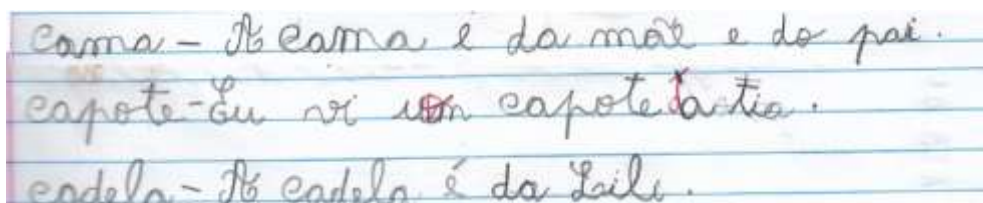 cama - A cama é da mãe e do pai.
capote - Eu vi um capote da tia.
cadela - A cadela é da Lili.